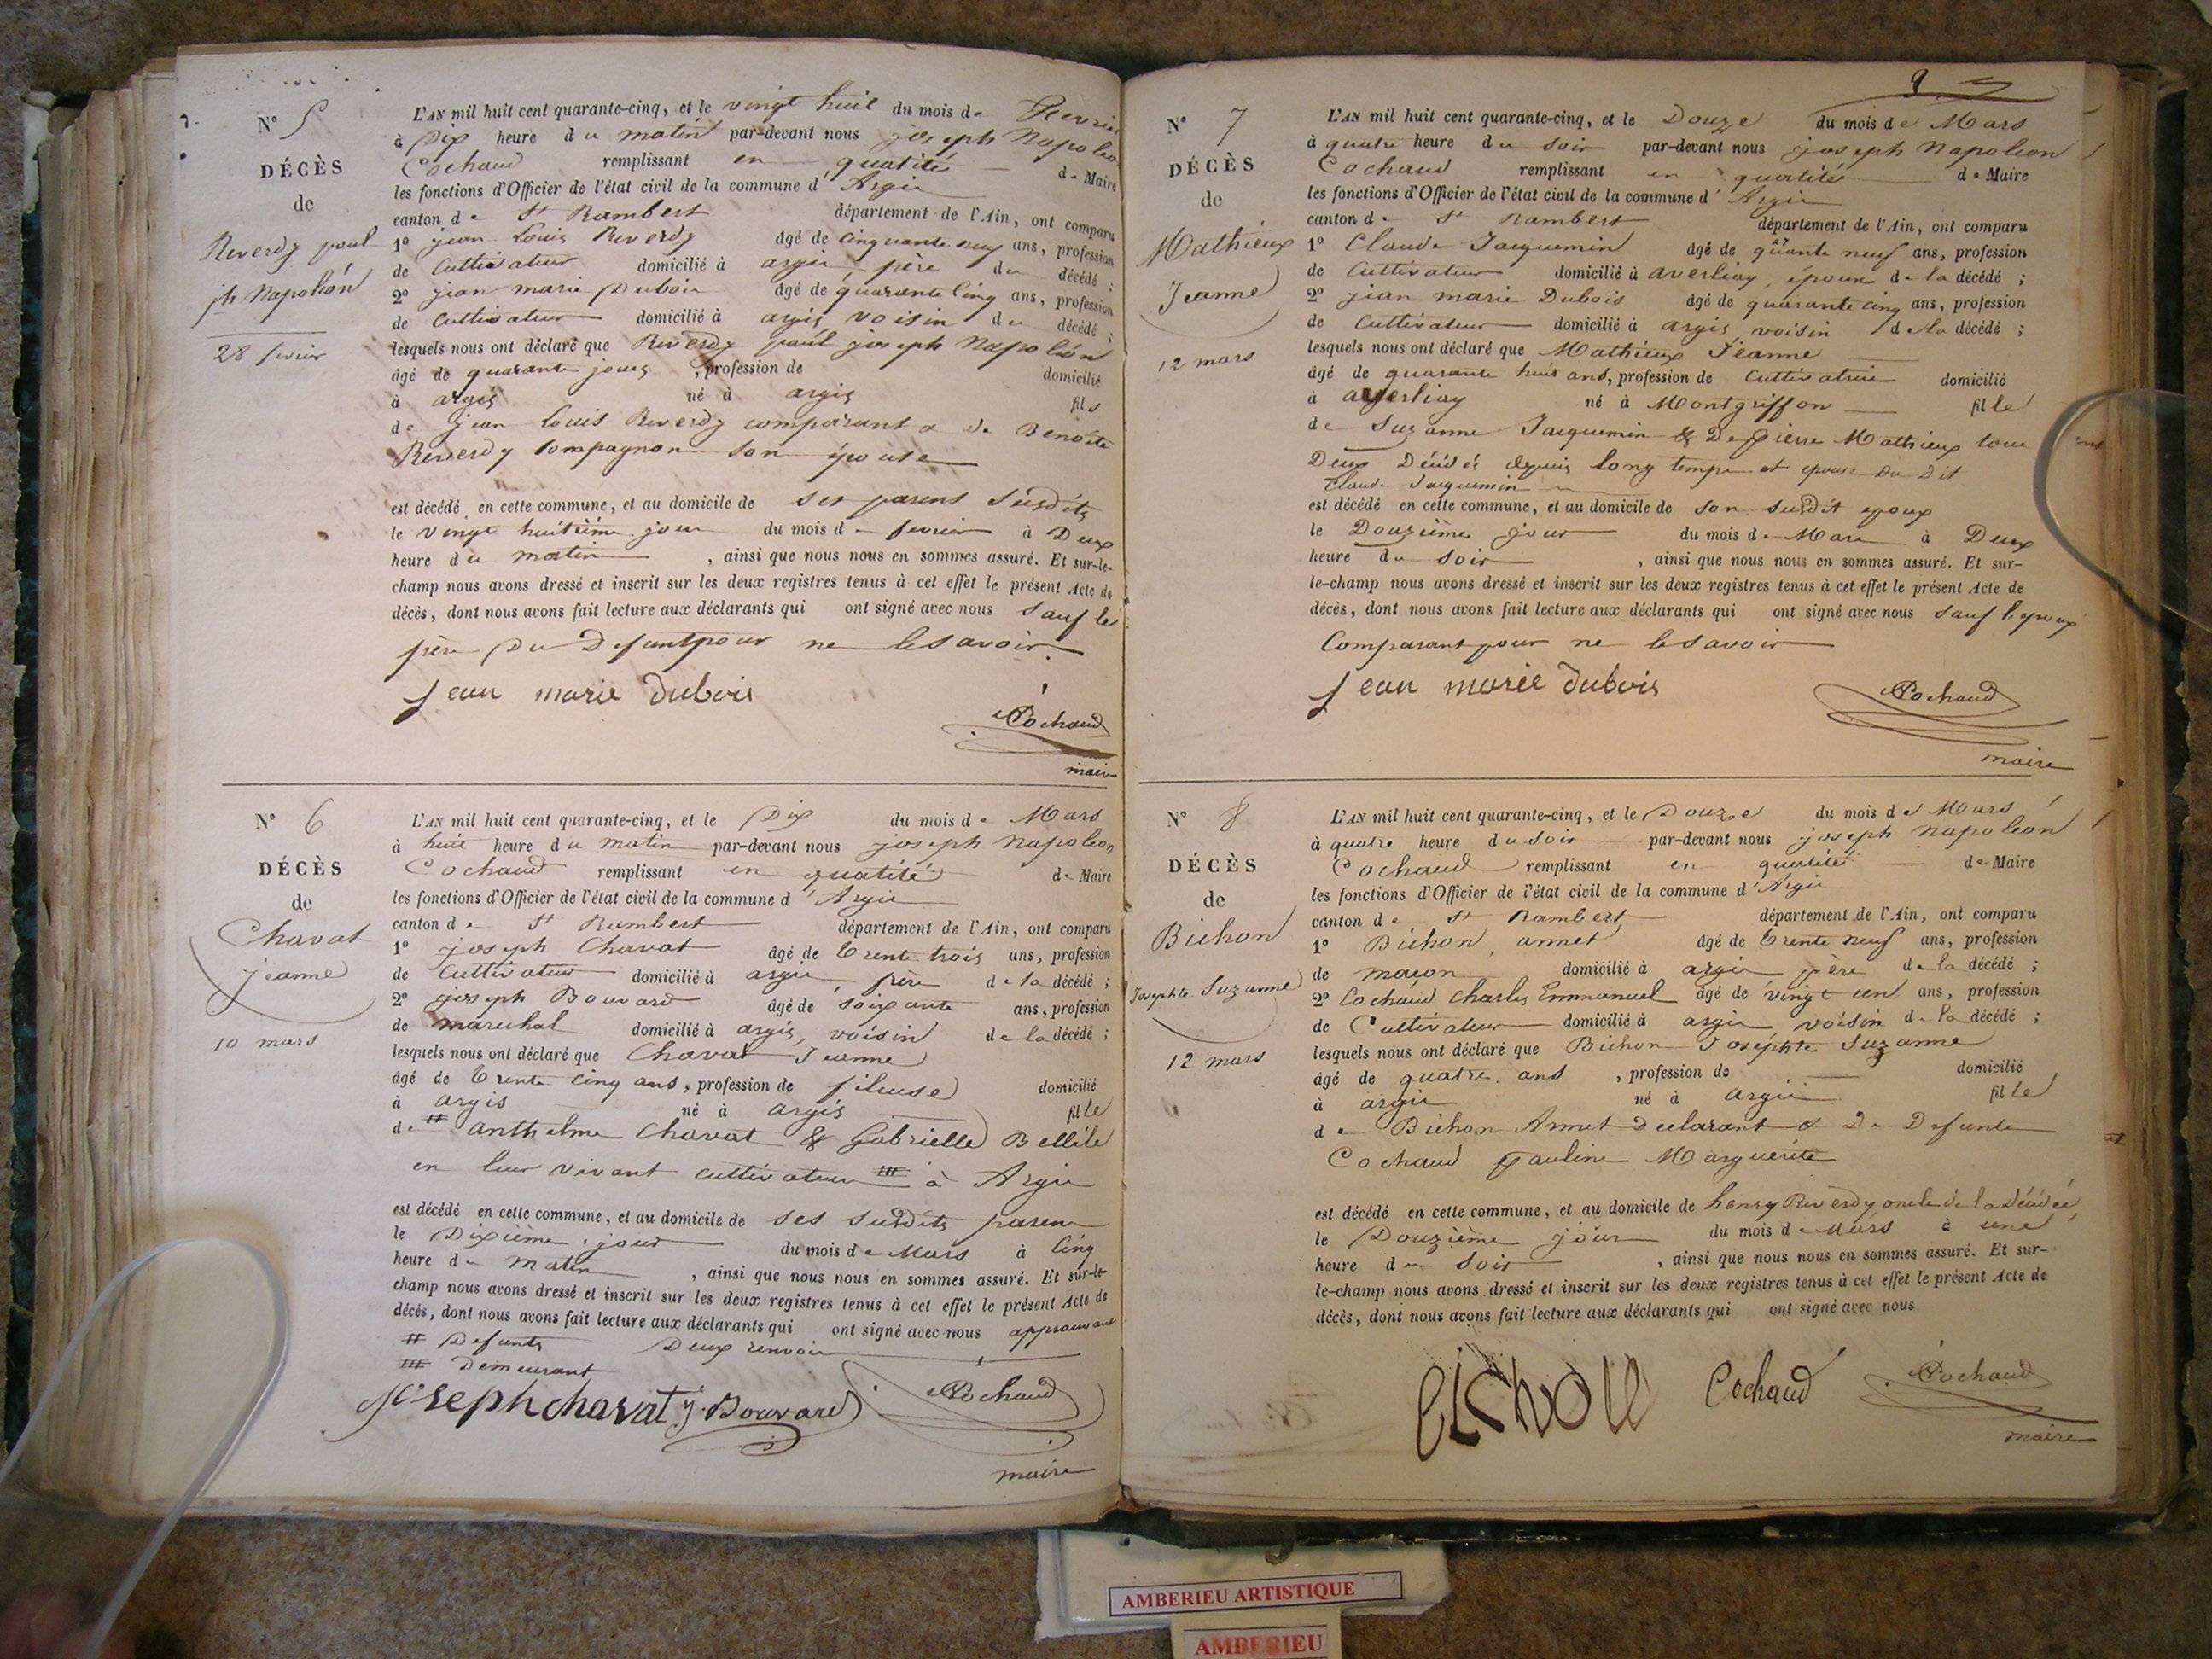 N° 5
DÉCÈS
de
Reverdy paul
jh Napoléon
28 fevrier
L'AN mil huit cent quarante-cinq, et le vingt huit du mois de Fevrier
à Dix heure du matin par-devant nous joseph Napoleon
Cochaud remplissant en qualité de Maire
les fonctions d'Officier de l'état civil de la commune d'Argis
canton de St Rambert département de l'Ain, ont comparu
1° jean Louis Reverdy âgé de cinquante neuf ans, profession
de Cultivateur domicilié à argis père du décédé ;
2° jean marie Dubois âgé de quarante cinq ans, profession
de Cultivateur domicilié à argis, voisin du décédé ;
lesquels nous ont déclaré que Reverdy paul joseph Napoléon
âgé de quarante jours , profession de domicilié
à argis né à argis fils
de jean Louis Reverdy comparant & de Benoite
Reverdy Compagnon son épouse
est décédé en cette commune, et au domicile de ses parens susdits
le vingt huitième jour du mois de fevrier à Deux
heure du matin , ainsi que nous nous en sommes assuré. Et sur-le-
champ nous avons dressé et inscrit sur les deux registres tenus à cet effet le présent Acte de
décès, dont nous avons fait lecture aux déclarants qui ont signé avec nous sauf le
père Du Defunt pour ne le savoir.
jean marie dubois
Cochaud
maire
N° 6
DÉCÈS
de
Chavat
jeanne
10 mars
L'AN mil huit cent quarante-cinq, et le Dix du mois de Mars
à huit heure du matin par-devant nous joseph Napoleon
Cochaud remplissant en qualité de Maire
les fonctions d'Officier de l'état civil de la commune d'Argis
canton de St Rambert département de l'Ain, ont comparu
1° joseph Chavat âgé de trente trois ans, profession
de Cultivateur domicilié à argis frère de la décédé ;
2° joseph Bouvard âgé de soixante ans, profession
de marechal domicilié à argis, voisin de la décédé ;
lesquels nous ont déclaré que Chavat Jeanne
âgé de trente cinq ans, profession de fileuse domicilié
à argis né à argis fille
de # anthelme Chavat & Gabrielle Bellile
en leur vivant cultivateur ⧻ à Argis
est décédé en cette commune, et au domicile de ses susdits parens
le Dixième jour du mois de Mars à Cinq
heure du Matin , ainsi que nous nous en sommes assuré. Et sur-le-
champ nous avons dressé et inscrit sur les deux registres tenus à cet effet le présent Acte de
décès, dont nous avons fait lecture aux déclarants qui ont signé avec nous approuvant
# Defunts Deux renvois
⧻ Demeurant
Joseph chavat j. Bouvard Cochaud
maire
9
N° 7
DÉCÈS
de
Mathieux
Jeanne
12 mars
L'AN mil huit cent quarante-cinq, et le Douze du mois de Mars
à quatre heure du soir par-devant nous joseph Napoléon
Cochaud remplissant en qualité de Maire
les fonctions d'Officier de l'état civil de la commune d'Argis
canton de St Rambert département de l'Ain, ont comparu
1° Claude Jacquemin âgé de quarante neuf ans, profession
de Cultivateur domicilié à averliay, époux de la décédé ;
2° jean marie Dubois âgé de quarante cinq ans, profession
de Cultivateur domicilié à argis voisin de la décédé ;
lesquels nous ont déclaré que Mathieux Jeanne
âgé de quarante huit ans, profession de Cultivatrice domicilié
à averliay né à Montgriffon fille
de Suzanne Jacquemin & De pierre Mathieux tous
Deux Décédés depuis long temps et epouse Du Dit
Claude Jacquemin
est décédé en cette commune, et au domicile de son susdit epoux
le Douzième jour du mois de Mars à Deux
heure du soir , ainsi que nous nous en sommes assuré. Et sur-
le-champ nous avons dressé et inscrit sur les deux registres tenus à cet effet le présent Acte de
décès, dont nous avons fait lecture aux déclarants qui ont signé avec nous sauf l'epoux
Comparant pour ne le savoir
jean marie dubois
Cochaud
maire
N° 8
DÉCÈS
de
Bichon
Josephte Suzanne
12 mars
L'AN mil huit cent quarante-cinq, et le Douze du mois de Mars
à quatre heure du soir par-devant nous joseph Napoléon
Cochaud remplissant en qualité de Maire
les fonctions d'Officier de l'état civil de la commune d'Argis
canton de St Rambert département de l'Ain, ont comparu
1° Bichon annet âgé de trente neuf ans, profession
de maçon domicilié à argis père de la décédé ;
2° Cochaud Charles Emmanuel âgé de vingt un ans, profession
de Cultivateur domicilié à argis voisin de la décédé ;
lesquels nous ont déclaré que Bichon Josephte Suzanne
âgé de quatre ans , profession de domicilié
à argis né à argis fille
de Bichon Annet declarant & De Defunte
Cochaud pauline Marguerite
est décédé en cette commune, et au domicile de henry Reverdy oncle de la Décédée
le Douzième jour du mois de Mars à une
heure du soir , ainsi que nous nous en sommes assuré. Et sur-
le-champ nous avons dressé et inscrit sur les deux registres tenus à cet effet le présent Acte de
décès, dont nous avons fait lecture aux déclarants qui ont signé avec nous
Cochaud Cochaud
maire
AMBERIEU ARTISTIQUE
AMBERIEU